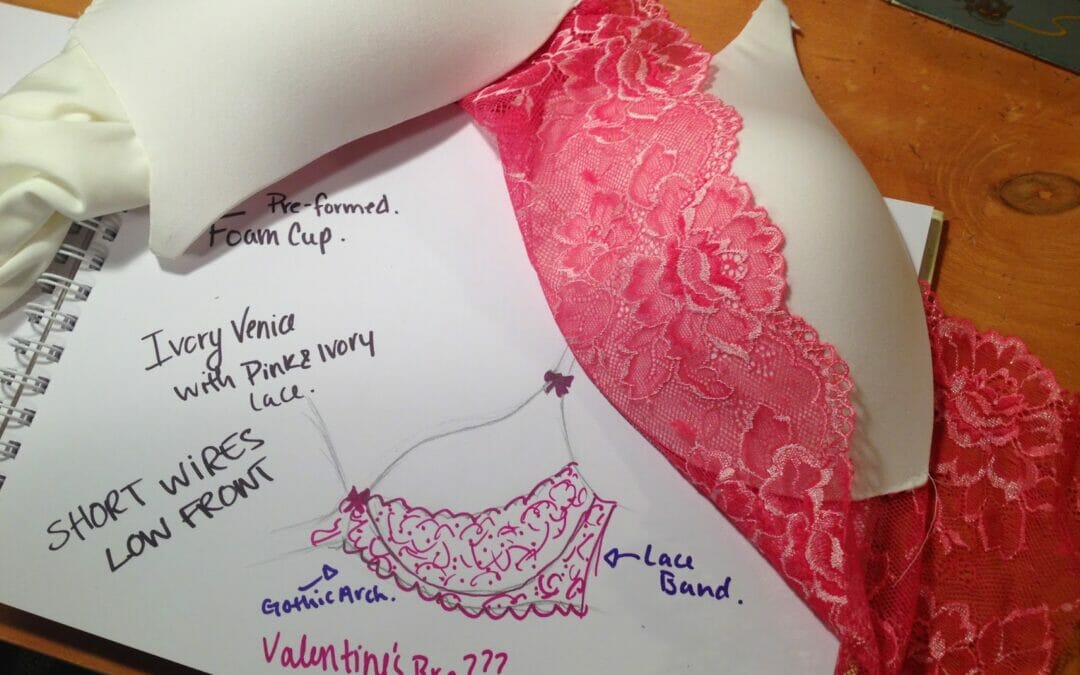 Pre-formed.
Foam Cup.
Ivory Venice
with Pink & Ivory
Lace.
SHORT WIRES
LOW FRONT
Lace
Band.
Gothic Arch.
Valentine's Bra???